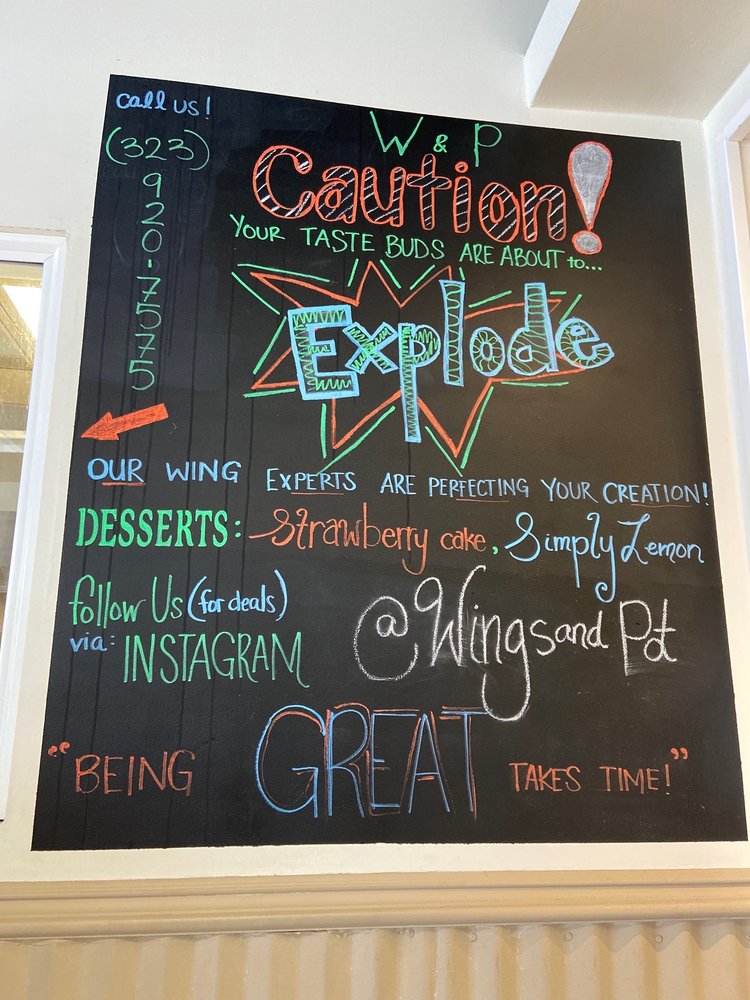 call us!
(323)
9
2
0.
7
5
7
5
W & P
Caution!
YOUR TASTE BUDS ARE ABOUT to...
Explode
OUR WING EXPERTS ARE PERFECTING YOUR CREATION!
DESSERTS: Strawberry cake, Simply Lemon
follow Us (for deals)
via: INSTAGRAM
@Wingsand Pot
"BEING GREAT TAKES TIME!"